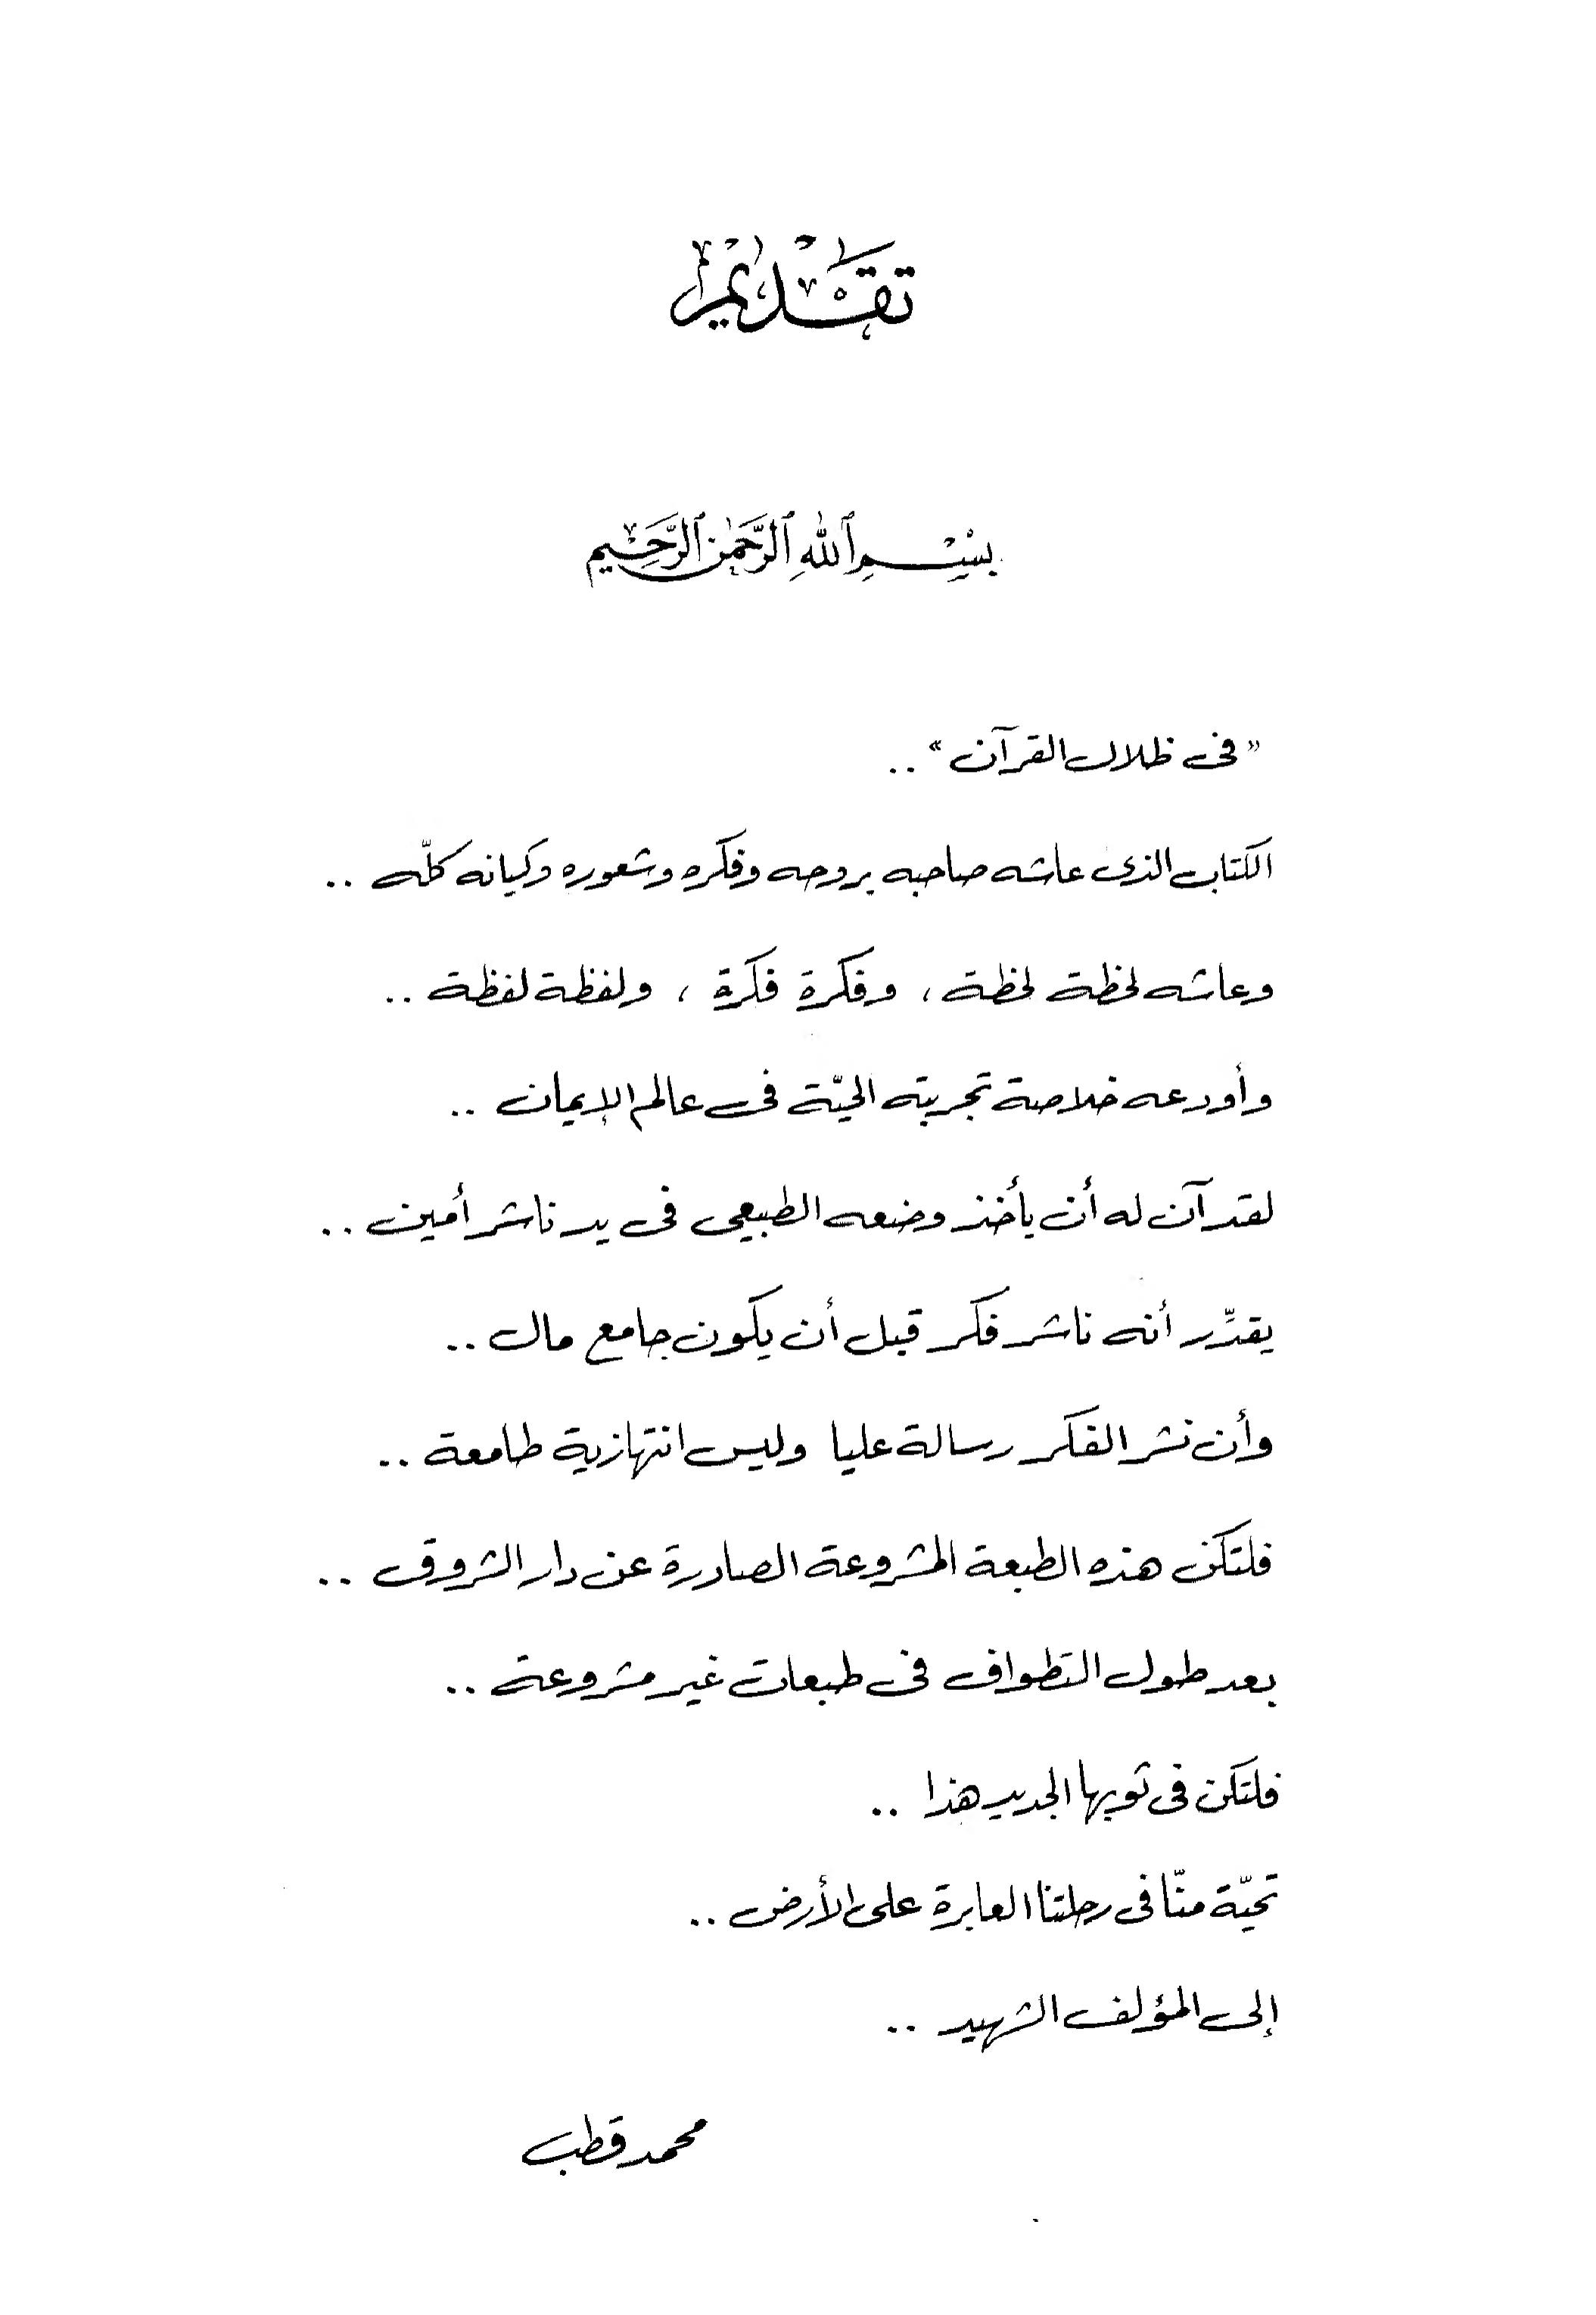 تقديم
بِسْمِ ٱللَّهِ ٱلرَّحْمَٰنِ ٱلرَّحِيمِ
"فى ظلال القرآن" ..
الكتاب الذى عاشه صاحبه بروحه وفكره وشعوره وكيانه كلّه ..
وعاشه لحظة لحظة ، وفكرة فكرة ، ولفظة لفظة ..
وأودعه خلاصة تجربته الحيّة فى عالم الإيمان ..
لقد آن له أن يأخذ وضعه الطبيعى فى يد ناشر أمين ..
يقدِّر أنه ناشر فكر قبل أن يكون جامع مال ..
وأن نشر الفكر رسالة عليا وليس انتهازية طامعة ..
فلتكن هذه الطبعة المشروعة الصادرة عن دار الشروق ..
بعد طول التطواف فى طبعات غير مشروعة ..
فلتكن فى ثوبها الجديد هذا ..
تحيّة منّا فى رحلتنا العابرة على الأرض ..
إلى المؤلف الشهيد ..
محمد قطب